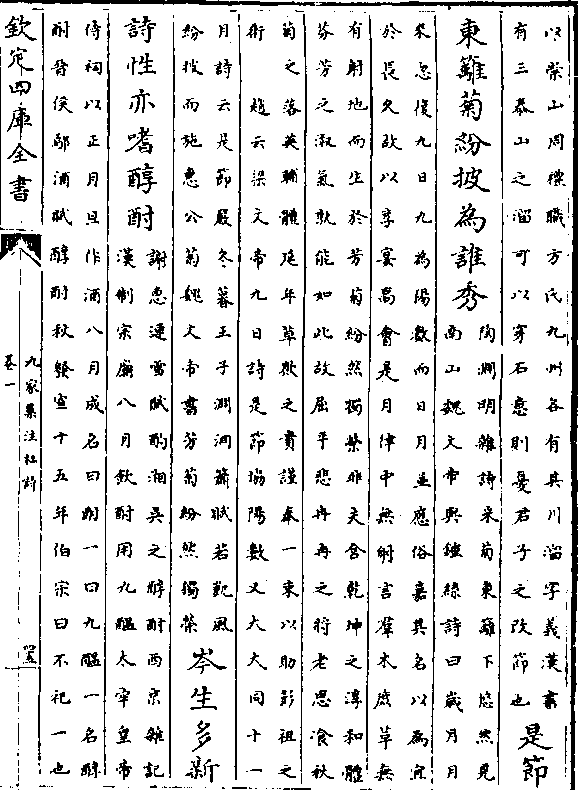 以榮山周禮職方氏九州各有其川溜字義漢書
有三泰山之溜可以穿石意則憂君子之改節也
是節
東籬菊紛披為誰秀
陶淵明雜詩采菊東籬下悠然見
南山魏文帝與鍾繇詩曰歲月月
來忽復九日九為陽數而日月並應俗嘉其名以為宜
於長久故以享宴高會是月律中無射言羣木庶草無
有射地而生於芳菊紛然獨榮非夫含乾坤之淳和體
芬芳之淑氣孰能如此故屈平悲冉冉之將老思飡秋
菊之落英輔體延年草斯之貴謹奉一束以助彭祖之
術 趙云梁文帝九日詩是節協陽數又大大同十一
月詩云是節嚴冬暮王子淵洞簫賦若凱風
紛披而施惠公菊魏文帝書芳菊紛然獨榮
岑生多新
詩性亦嗜醇酎
謝惠連雪賦酌湘吳之醇酎西京雜記
漢制宗廟八月飲酎用九醞太牢皇帝
侍祠以正月旦作酒八月成名曰酎一曰九醞一名醇
酎晉侯鄢酒賦醇酎秋發宣十五年伯宗曰不祀一也
欽定四庫全書
九家集注杜詩
卷一